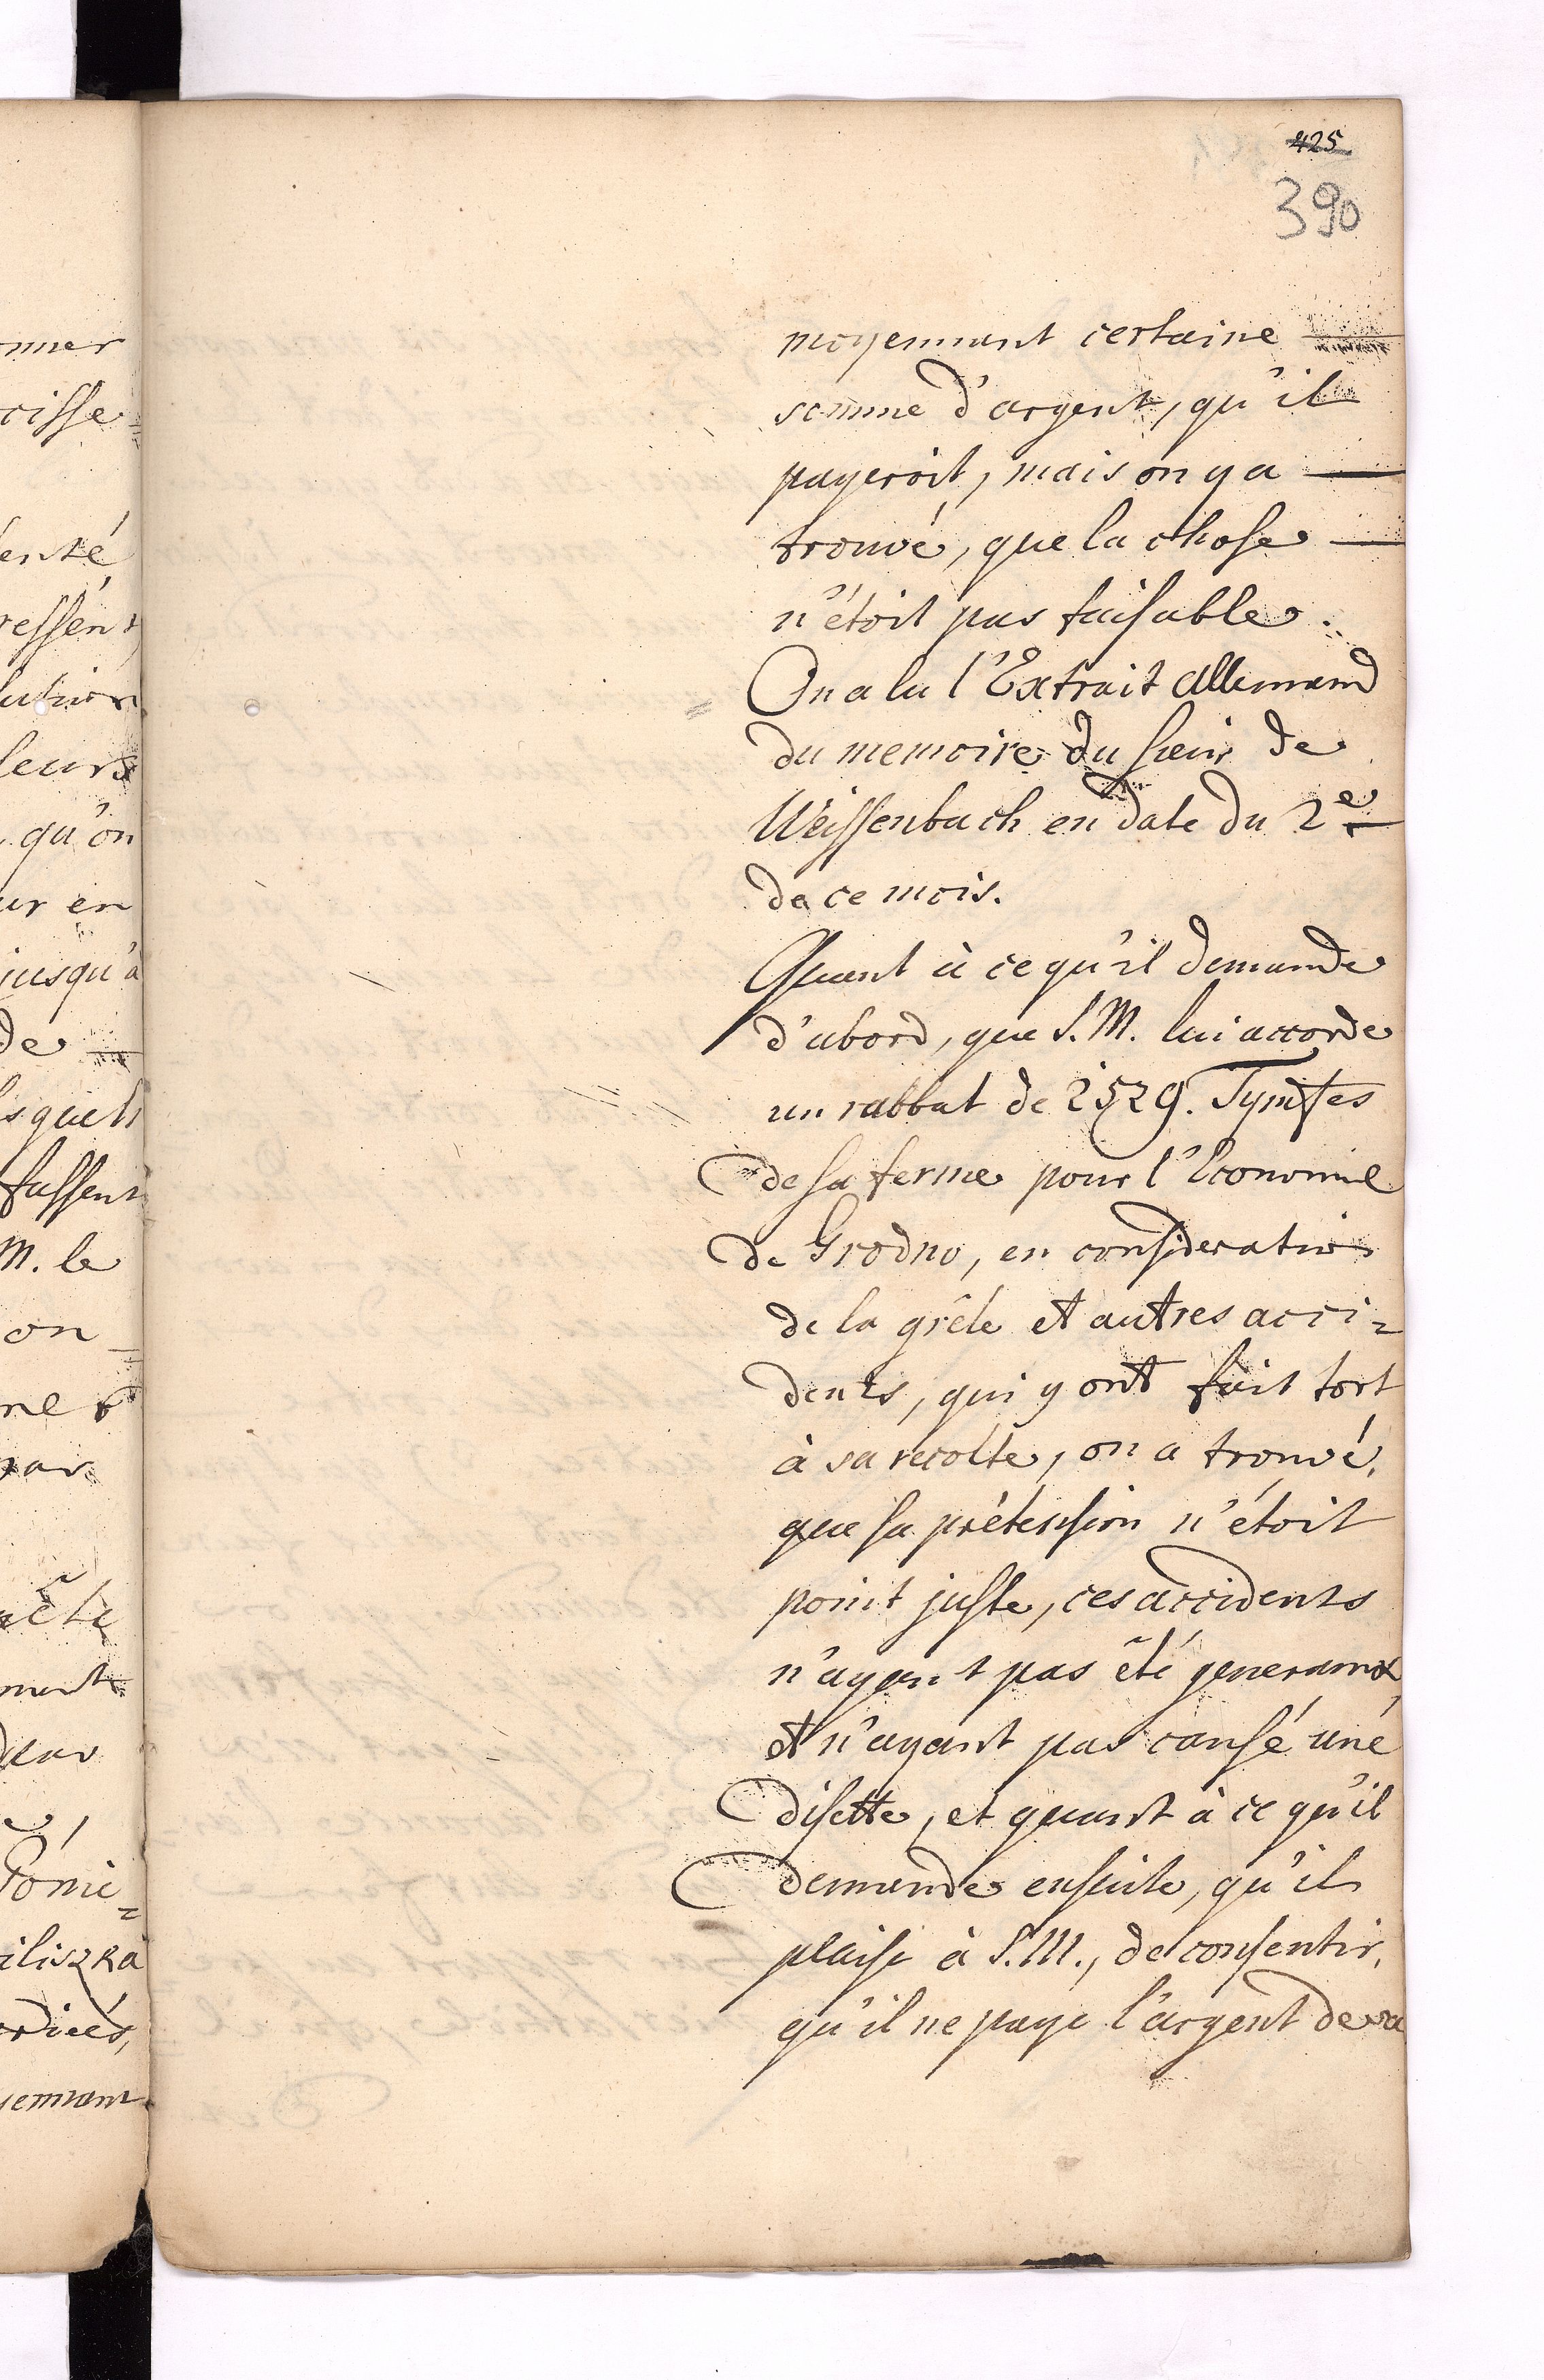 425
390
moyennant certaine
somme d'argent, qu'il
payeroit, mais on y a
trouvé, que la chose
n'étoit pas faisable.
On a lu l'Extrait Allemand
du memoire du Sieur de
Weissenbach en date du 2e
de ce mois.
Quant à ce qu'il demande
d'abord, que S. M. lui accorde
un rabbat de 2529. Tymfes
de sa ferme pour l'Economie
de Grodno, en consideration
de la grêle et autres acci=
dents, qui y ont fait tort
à sa recolte, on a trouvé,
que sa prétension n'étoit
point juste, ces accidents
n'ayant pas été generaux,
et n'ayant pas causé une
disette, et quant à ce qu'il
demande ensuite, qu'il
plaise à S. M., de consentir,
qu'il ne paye l'argent de sa
onner
cisse=
enté
ressent
lution
leurs
qu'on
ur en
jusqu'à
de
squels
fassent
M. le
on
par
Pónie=
iliszka
ordiées,
yennant